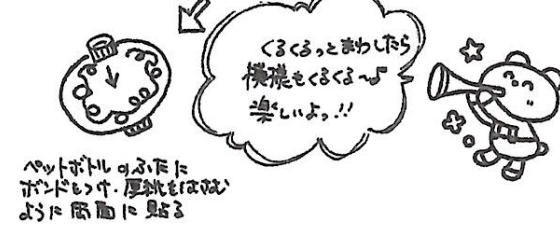 くるくるっとまわしたら
模様もくるくる〜♪
楽しいよっ!!
ペットボトルのふたに
ボンドをつけ、厚紙をはさむ
ように両面に貼る